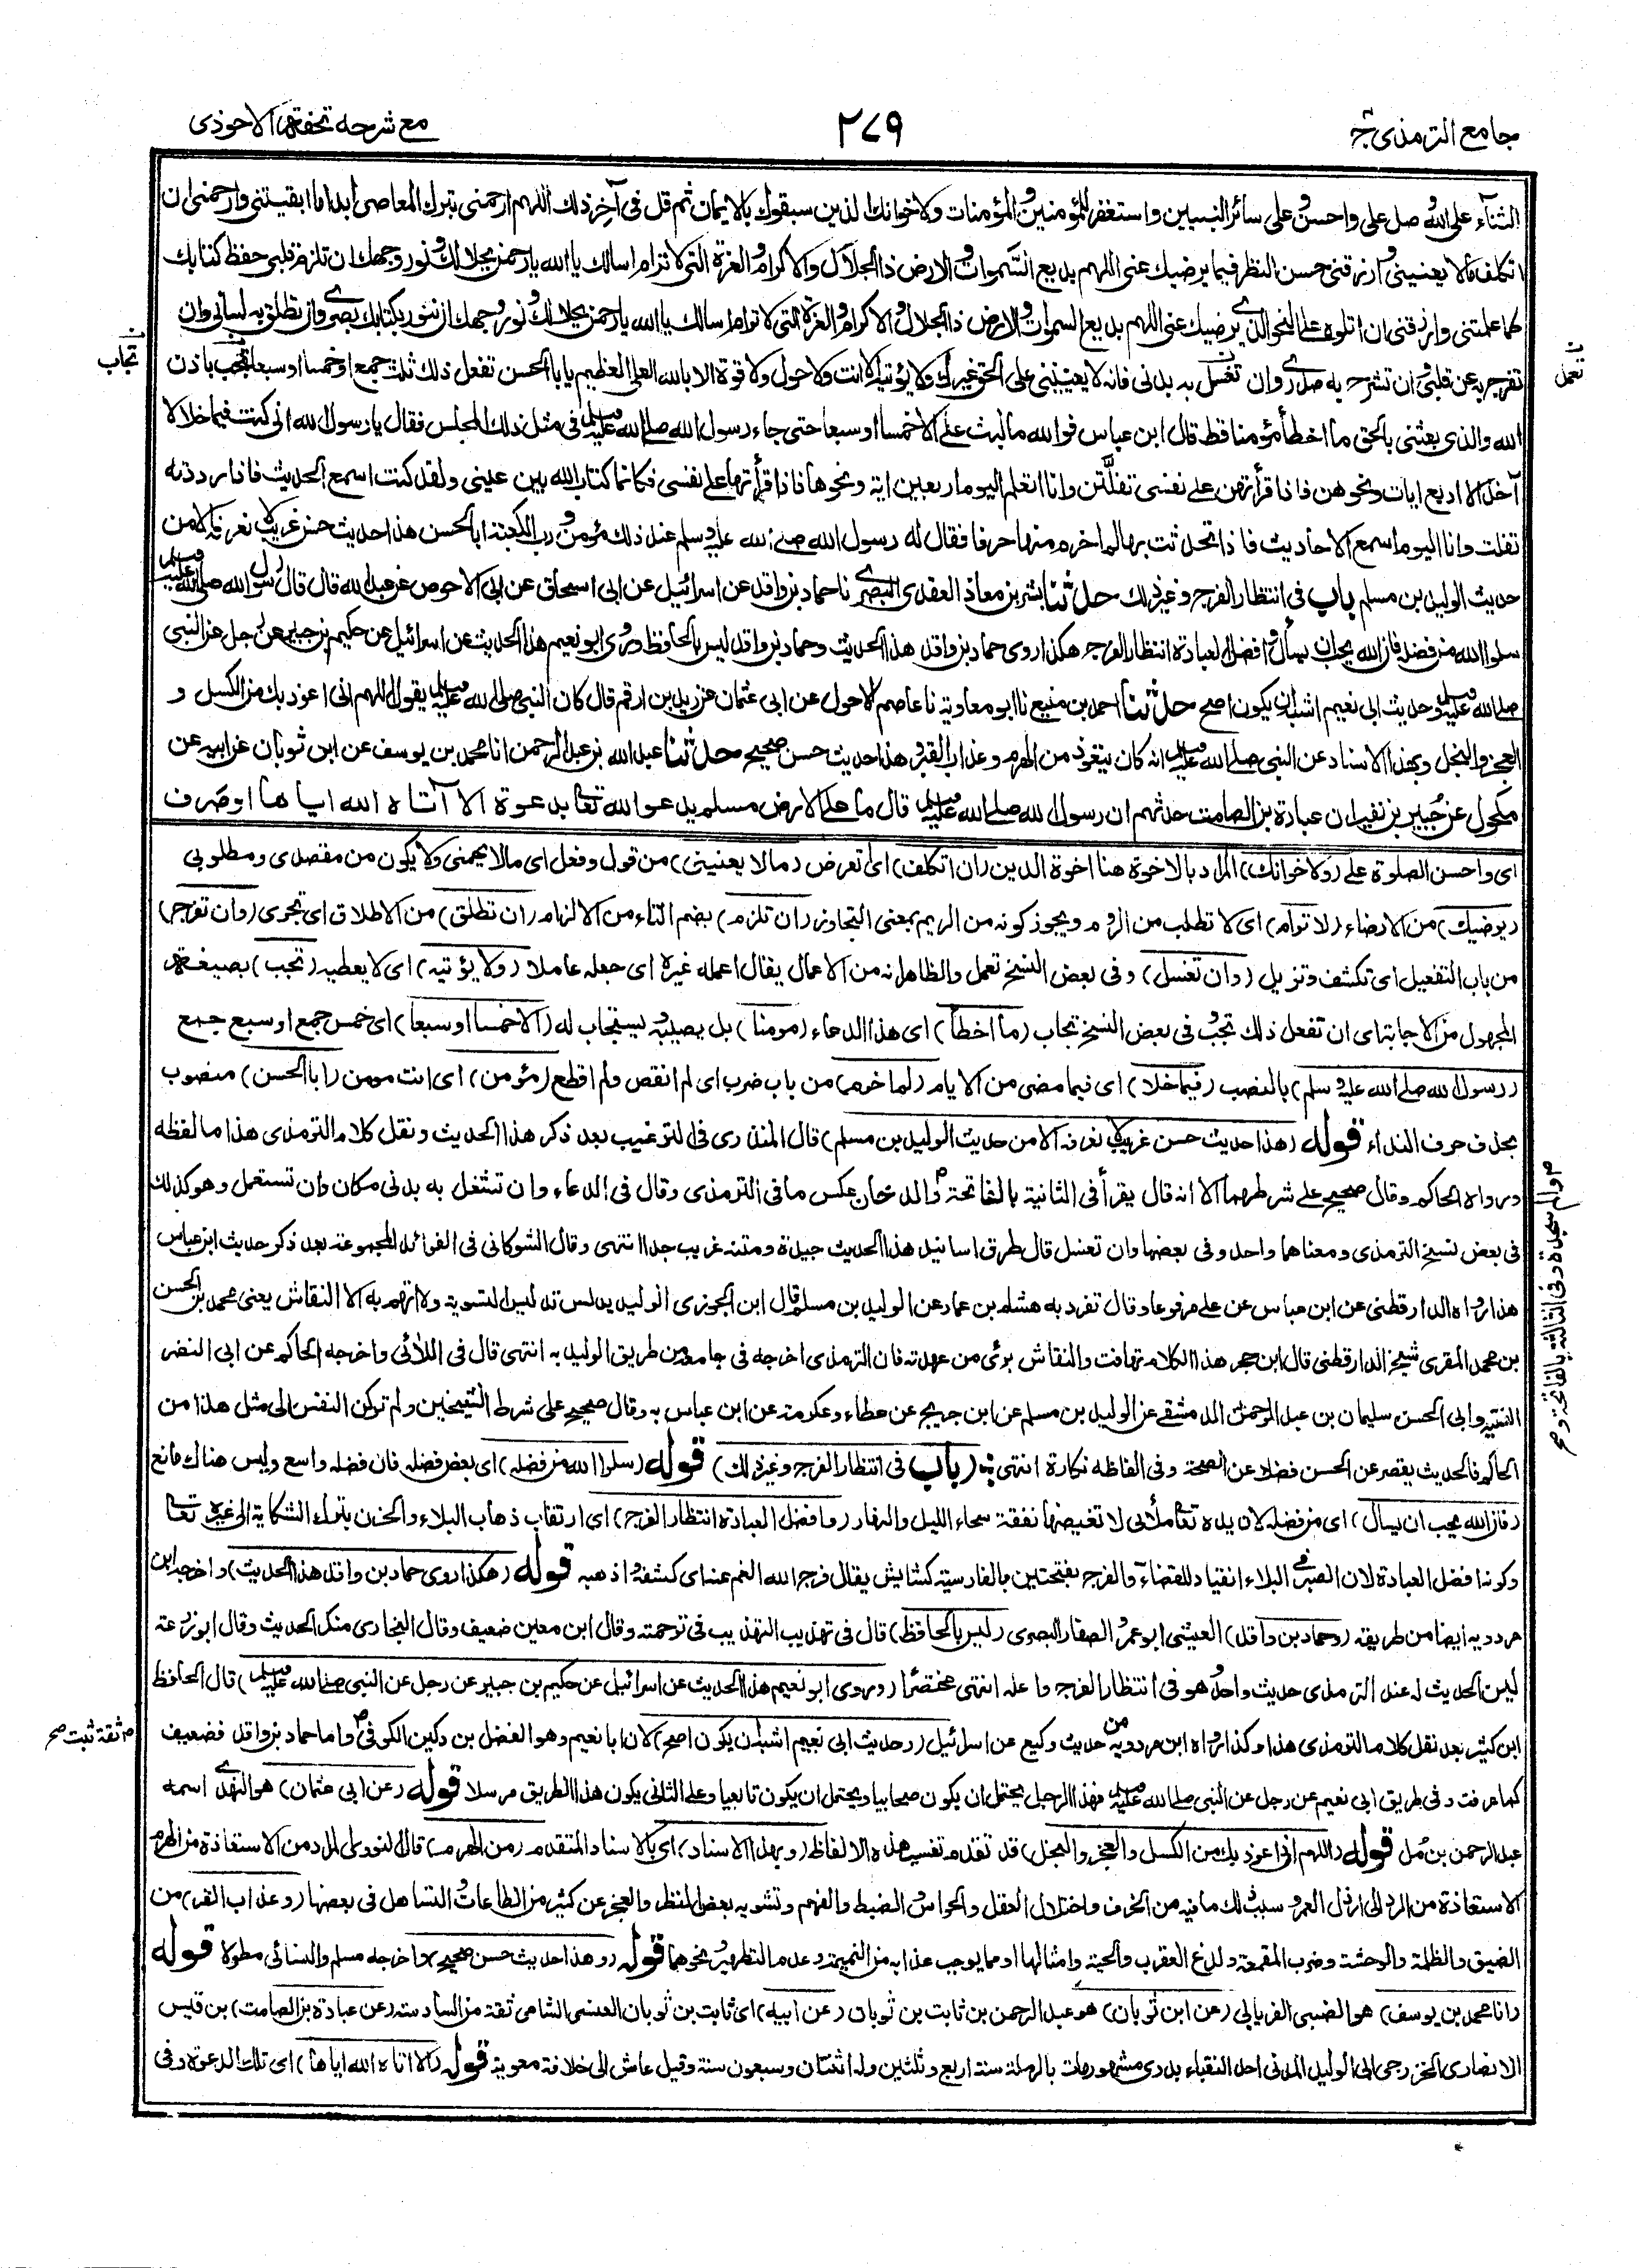 جامع الترمذی ج
٢٧٩
مع شرحه تحفة الاحوذی
الثناء على الله وصل علي واحسن وعلى سائر النبيين واستغفر للمؤمنين والمؤمنات ولاخوانك الذين سبقوك بالايمان ثم قل فى آخر ذلك اللهم ارحمنى بترك المعاصى ابدا ما ابقيتنى وارحمنى ان
اتكلف مالا يعنينى وارزقنى حسن النظر فيما يرضيك عنى اللهم بديع السموات والارض ذا الجلال والاكرام والعزة التى لا ترام اسالك يا الله يا رحمن بجلالك ونور وجهك ان تلزم قلبى حفظ كتابك
كما علمتنى وارزقنى ان اتلوه على النحو الذى يرضيك عنى اللهم بديع السموات والارض ذا الجلال والاكرام والعزة التى لا ترام اسالك يا الله يا رحمن بجلالك ونور وجهك ان تنور بكتابك بصرى وان تطلق به لسانى وان
تفرج به عن قلبى وان تشرح به صدرى وان تغسل به بدنى فانه لا يعيننى على الحق غيرك ولا يؤتيه الا انت ولا حول ولا قوة الا بالله العلى العظيم يا ابا الحسن تفعل ذلك ثلث جمع او خمسا او سبعا تجب باذن
الله والذى بعثنى بالحق ما اخطأ مؤمنا قط قال ابن عباس فوالله ما لبث على الا خمسا او سبعا حتى جاء رسول الله صلى الله عليه وسلم فى مثل ذلك المجلس فقال يا رسول الله انى كنت فيما خلا لا
آخذ الا اربع ايات ونحوهن فاذا قرأتهن على نفسى تفلتن وانا اتعلم اليوم اربعين اية ونحوها فاذا قرأتها على نفسى فكانما كتاب الله بين عينى ولقد كنت اسمع الحديث فاذا رددته
تفلت وانا اليوم اسمع الاحاديث فاذا تحدثت بها لم اخرم منها حرفا فقال له رسول الله صلى الله عليه وسلم عند ذلك مؤمن ورب الكعبة ابا الحسن هذا حديث حسن غريب لا نعرفه الا من
حديث الوليد بن مسلم باب فى انتظار الفرج وغير ذلك حدثنا بشر بن معاذ العقدى البصرى نا حماد بن واقد عن اسرائيل عن ابى اسحاق عن ابى الاحوص عن عبد الله قال قال رسول الله صلى الله عليه وسلم
سلوا الله من فضله فان الله يحب ان يسأل وافضل العبادة انتظار الفرج هكذا روى حماد بن واقد هذا الحديث وحماد بن واقد ليس بالحافظ وروى ابو نعيم هذا الحديث عن اسرائيل عن حكيم بن جبير عن رجل عن النبى
صلى الله عليه وسلم وحديث ابى نعيم اشبه ان يكون اصح حدثنا احمد بن منيع نا ابو معاوية نا عاصم الاحول عن ابى عثمان عن زيد بن ارقم قال كان النبى صلى الله عليه وسلم يقول اللهم انى اعوذ بك من الكسل و
العجز والبخل وبهذا الاسناد عن النبى صلى الله عليه وسلم انه كان يتعوذ من الهرم وعذاب القبر هذا حديث حسن صحيح حدثنا عبد الله بن عبد الرحمن انا محمد بن يوسف عن ابن ثوبان عن ابيه عن
مكحول عن جبير بن نفير ان عبادة بن الصامت حدثهم ان رسول الله صلى الله عليه وسلم قال ما على الارض مسلم يدعو الله تعالى بدعوة الا آتاه الله اياها او صرف
اى واحسن الصلوة على (ولاخوانك) المراد بالاخوة هنا اخوة الدين (ان اتكلف) اى اتعرض (مالا يعنينى) من قول وفعل اى مالا يهمنى ولا يكون من مقصدى ومطلوبى
(يرضيك) من الارضاء (لا ترام) اى لا تطلب من الروم ويجوز كونه من الريم بمعنى التجاوز (ان تلزم) بضم التاء من الالزام (ان تطلق) من الاطلاق اى تجرى (وان تفرج)
من باب التفعيل اى تكشف وتزيل (وان تغسل) وفى بعض النسخ تعمل والظاهر انه من الاعمال يقال اعمله غيره اى جعله عاملا (ولا يؤتيه) اى لا يعطيه (تجب) بصيغة
المجهول من الاجابة اى ان تفعل ذلك تجب وفى بعض النسخ تجاب (ما اخطأ) اى هذا الدعاء (مومنا) بل يصيبه ويستجاب له (الا خمسا او سبعا) اى خمس جمع او سبع جمع
(رسول الله صلى الله عليه وسلم) بالنصب (فيما خلا) اى فيما مضى من الايام (لم اخرم) من باب ضرب اى لم انقص ولم اقطع (مؤمن) اى انت مومن (ابا الحسن) منصوب
بحذف حرف النداء قوله (هذا حديث حسن غريب لا نعرفه الا من حديث الوليد بن مسلم) قال المنذرى فى الترغيب بعد ذكر هذا الحديث ونقل كلام الترمذى هذا ما لفظه
ورواه الحاكم وقال صحيح على شرطهما الا انه قال يقرأ فى الثانية بالفاتحة والدخان عكس ما فى الترمذى وقال فى الدعاء وان تشغل به بدنى مكان وان تستعمل وهو كذلك
فى بعض نسخ الترمذى ومعناهما واحد وفى بعضها وان تغسل قال طرق اسانيد هذا الحديث جيدة ومتنه غريب جدا انتهى وقال الشوكانى فى الفوائد المجموعة بعد ذكر حديث ابن عباس
هذا رواه الدارقطنى عن ابن عباس عن على مرفوعا وقال تفرد به هشام بن عمار عن الوليد بن مسلم قال ابن الجوزى الوليد يدلس تدليس التسوية ولا اتهم به الا النقاش يعنى محمد بن الحسن
بن محمد المقرى شيخ الدارقطنى قال ابن حجر هذا الكلام تهافت والنقاش برئ من عهدته فان الترمذى اخرجه فى جامعه من طريق الوليد به انتهى قال فى اللآئى واخرجه الحاكم عن ابى النضر
الفقيه وابى الحسن سليمان بن عبد الرحمن الدمشقى عن الوليد بن مسلم عن ابن جريج عن عطاء وعكرمة عن ابن عباس به وقال صحيح على شرط الشيخين ولم تركن النفس الى مثل هذا من
الحاكم فالحديث يقصر عن الحسن فضلا عن الصحة وفى الفاظه نكارة انتهى (باب فى انتظار الفرج وغير ذلك) قوله (سلوا الله من فضله) اى بعض فضله فان فضله واسع وليس هناك مانع
(فان الله يحب ان يسأل) اى من فضله لان يده تعالى ملأى لا تغيضها نفقة سحاء الليل والنهار (وافضل العبادة انتظار الفرج) اى ارتقاب ذهاب البلاء والحزن بترك الشكاية الى غيره تعالى
وكونه افضل العبادة لان الصبر فى البلاء انقياد للقضاء والفرج بفتحتين بالفارسية كشايش يقال فرج الله الغم عنه اى كشفه واذهبه قوله (هكذا روى حماد بن واقد هذا الحديث) واخرجه ابن
مردويه ايضا من طريقه (وحماد بن واقد) العيشى ابو عمر الصفار البصرى (ليس بالحافظ) قال فى تهذيب التهذيب فى ترجمته وقال ابن معين ضعيف وقال البخارى منكر الحديث وقال ابو زرعة
لين الحديث له عند الترمذى حديث واحد وهو فى انتظار الفرج واعله انتهى مختصرا (وروى ابو نعيم هذا الحديث عن اسرائيل عن حكيم بن جبير عن رجل عن النبى صلى الله عليه وسلم) قال الحافظ
ابن كثير بعد نقل كلام الترمذى هذا وكذا رواه ابن مردويه من حديث وكيع عن اسرائيل (وحديث ابى نعيم اشبه ان يكون اصح) لان ابا نعيم وهو الفضل بن دكين الكوفى واما حماد بن واقد فضعيف
كما عرفت وفى طريق ابى نعيم عن رجل عن النبى صلى الله عليه وسلم فهذا الرجل يحتمل ان يكون صحابيا ويحتمل ان يكون تابعيا وعلى الثانى يكون هذا الطريق مرسلا قوله (عن ابى عثمان) هو النهدى اسمه
عبد الرحمن بن مل قوله (اللهم انى اعوذ بك من الكسل والعجز والبخل) قد تقدم تفسير هذه الالفاظ (وبهذا الاسناد) اى بالاسناد المتقدم (من الهرم) قال النووى المراد من الاستعاذة من الهرم
الاستعاذة من الرد الى ارذل العمر وسبب ذلك ما فيه من الخرف واختلال العقل والحواس والضبط والفهم وتشويه بعض المنظر والعجز عن كثير من الطاعات والتساهل فى بعضها (وعذاب القبر) من
الضيق والظلمة والوحشة وضرب المقمعة ولدغ العقرب والحية وامثالها او مما يوجب عذابه من النميمة وعدم التطهير ونحوهما قوله (وهذا حديث حسن صحيح) واخرجه مسلم والنسائى مطولا قوله
(انا محمد بن يوسف) هو الضبى الفريابى (عن ابن ثوبان) هو عبد الرحمن بن ثابت بن ثوبان (عن ابيه) اى ثابت بن ثوبان العنسى الشامى ثقة من السادسة (عن عبادة بن الصامت) بن قيس
الانصارى الخزرجى ابى الوليد المدنى احد النقباء بدرى مشهور مات بالرملة سنة اربع وثلثين وله اثنتان وسبعون سنة وقيل عاش الى خلافة معوية قوله (الا اتاه الله اياها) اى تلك الدعوة وفى
تجاب
تعمل
والم سجدة وفى الثالثة بالفاتحة و صح
ثقة ثبت صح